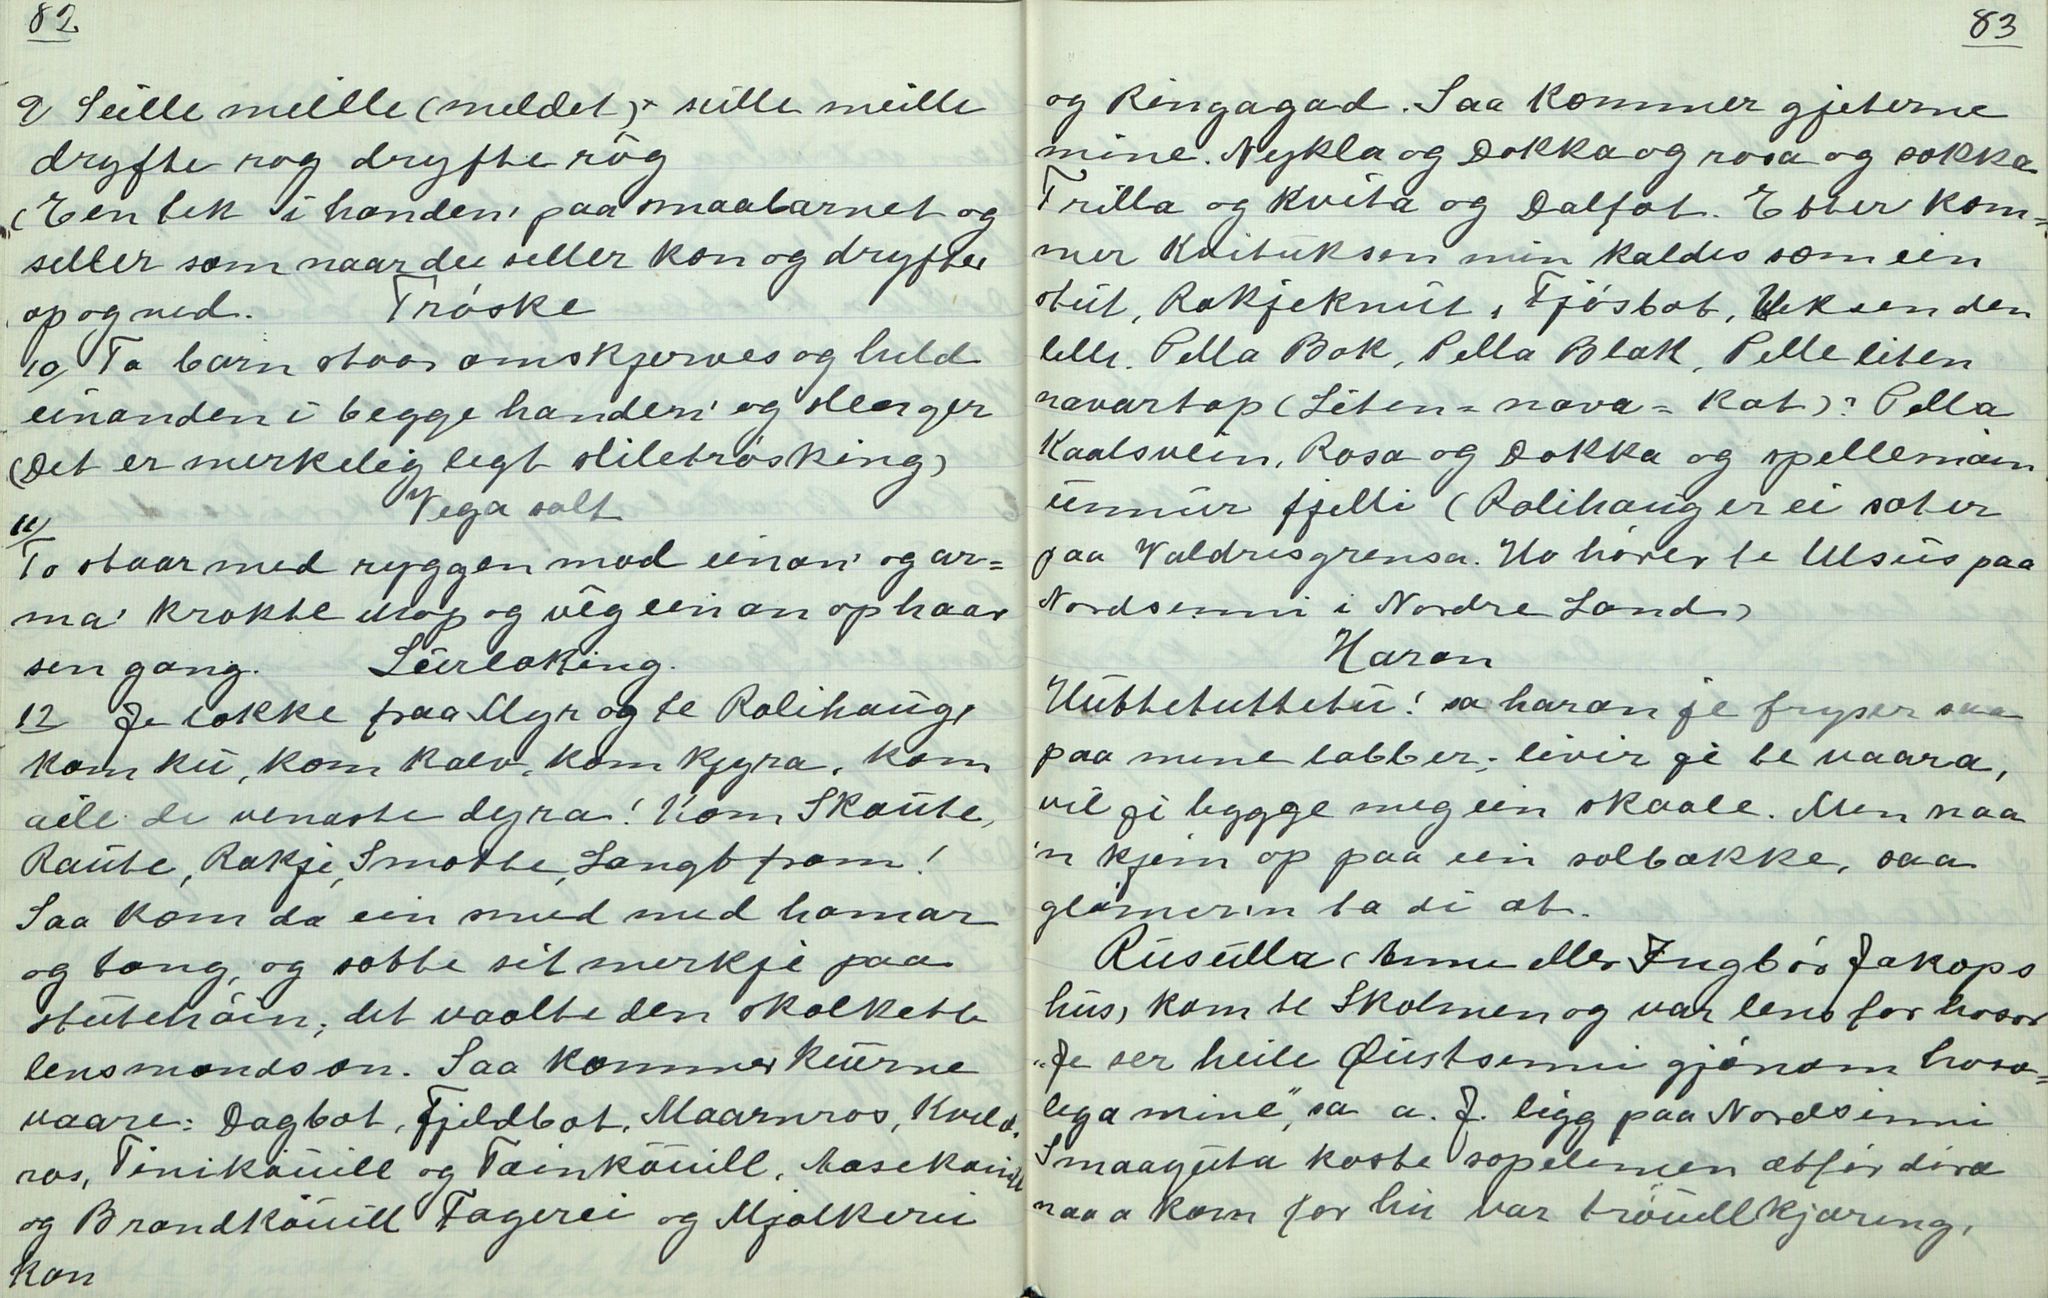 82
9 Seille meille (meldet) + seille meille
dryfte rog dryfte rög
(Een tek i handen' paa smaabarnet og
seller som naar du seller kon og dryfter
op og ned. Tröske
10/ To barn staar omskjerves og huld
einanden i begge handen' og slenger
(Det er merkelig legt stiletrösking)
Vega salt
11/
To staar med ryggen mod einan' og ar=
ma' krokte ihop og veg einan op haar
sen gang. Leurloking.
12 Je lokke fraa Myr og te Rolihaug,
kom ku, kom kalv, kom kjyra, kom
aill de venaste dyra! Kom Skaute,
Raute, Rakje, Smotte, Langt fram!
Saa kom da ein smed med hamar
og tong, og sotte sit merkje paa
stutehöin; det vaolte den skolkette
lensmandson. Saa kommer kuurne
vaare: Dagbot, Fjeldbot, Maarnros, Kveld.
ros, Tiniköuill og Tainköuill, Aasekouill
og Brandköuill Fagerei og Mjölkerei
kon
83
og Ringagad. Saa kommer gjeterne
mine. Nykla og Dokka og rosa og sokka
Trilla og Kvita og Dalfot. Etter kom=
mer Kvituksen min kaldes som ein
stut, Rakjeknut, Fjösbot, Uksen den
lille. Pella Bok, Pella Blak, Pelle liten
navartop (Liten = nava = kat)? Pella
Kaalsvein, Rosa og Dokka og spellemain
unnur fjelli (Rolihaug er ei sæter
paa Valdresgrensa. Ho hörer te Ulsus paa
Nordsinni i Nordre Land)
Haran
Huttetuttetu! sa haran je fryser saa
paa mine labber; livir je te vaara,
vil je byggge meg ein skaale. Men naa
'n kjem op paa ein solbakke, saa
glömer'n ta di at.
Rusulla (Anne eller Ingbör Jakops
hus) kom te Skolmen og var lens for hosor
"Je ser heile Øustsinni gjönom hoso=
lega mine", sa a. J. ligg paa Nordsinni
Smaaguta koste sopelimen ætför döra
naa a kom for hu var tröuillkjæring,